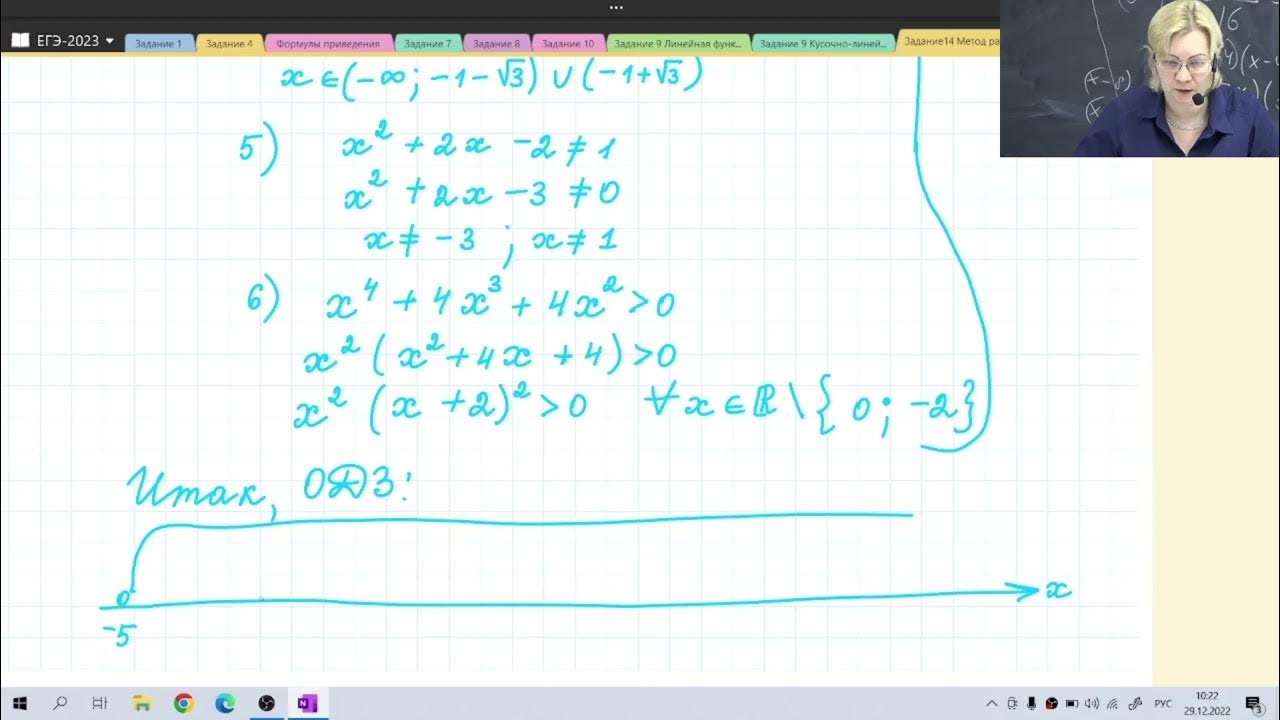 ...
ЕГЭ-2023
Задание 1
Задание 4
Формулы приведения
Задание 7
Задание 8
Задание 10
Задание 9 Линейная функ...
Задание 9 Кусочно-линей...
Задание14 Метод ра
x ∈ (-∞; -1-√3) ∪ (-1+√3)
5) x² + 2x - 2 ≠ 1
x² + 2x - 3 ≠ 0
x ≠ -3 ; x ≠ 1
6) x⁴ + 4x³ + 4x² > 0
x² (x² + 4x + 4) > 0
x² (x + 2)² > 0 ∀x ∈ ℝ \ { 0; -2}
Итак, ОДЗ:
x
-5
РУС
10:22
29.12.2022
3